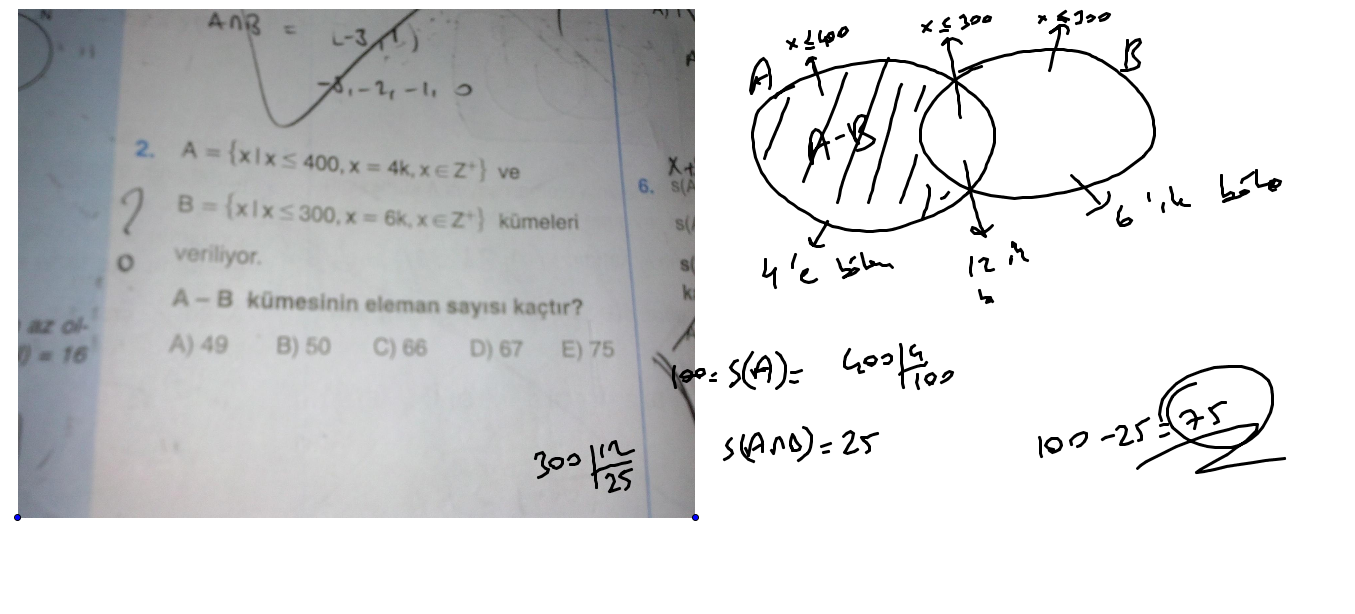 A∩B = (-3, 1)
-3, -2, -1, 0
2. A = {x | x ≤ 400, x = 4k, x ∈ Z⁺} ve
B = {x | x ≤ 300, x = 6k, x ∈ Z⁺} kümeleri
veriliyor.
A – B kümesinin eleman sayısı kaçtır?
A) 49 B) 50 C) 66 D) 67 E) 75
?
0
az ol-
= 16
6. s(A
s(
s(
k
x+
300 | 12
25
x ≤ 400
x ≤ 300
x ≤ 300
A
B
A-B
4'e bölün
12
6'
100 = s(A) = 400 | 4
100
s(A∩B) = 25
100 - 25 = 75